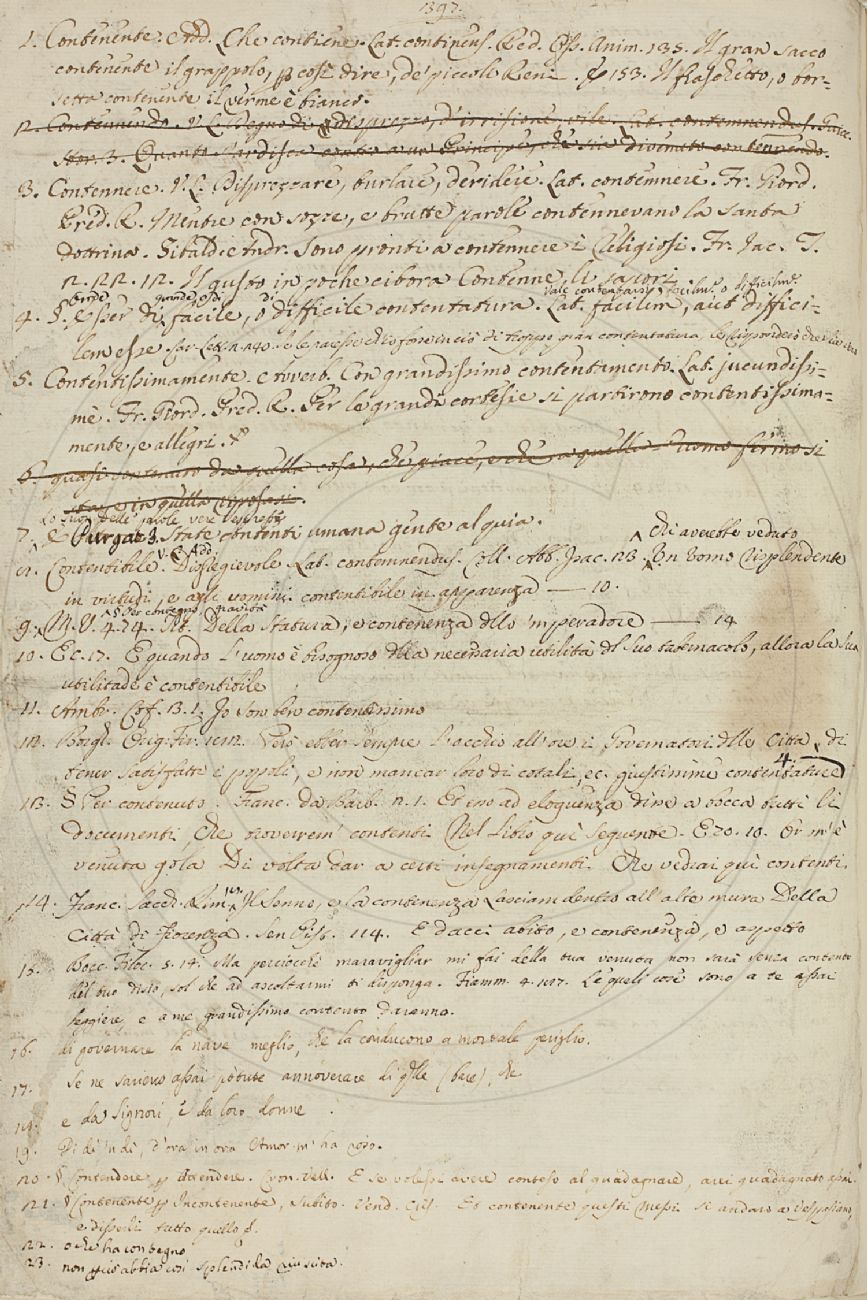 1397.
1. Contenente. Add. Che contiene. Lat. continens. Red. Oss. Anim. 135. Il gran sacco
contenente il grappolo, per così dire, de' piccoli Reni. E 153. Il fiaschetto, o bor-
setta contenente il verme è bianco.
2. Contennendo. V. L. Degno di disprezzo, d'irrisione, vile. Lat. contemnendus. Guicc.
Stor. 3. Quanto ardisca contro a un Principe, che sia divenuto contennendo.
3. Contennere. V. L. Disprezzare, burlare, deridere. Lat. contemnere. Fr. Giord.
Pred. R. Mentre con sozze, e brutte parole contennevano la santa
dottrina. Sibald. Andr. Sono pronti a contennere i Religiosi. Fr. Jac. T.
2. 22. 12. Il gusto in poche cibora Contenne, li sapori.
4. §. Esser di facile, o di difficile contentatura. Vale contentarsi facilm. o difficilm. Lat. facilem, aut diffici-
lem esse.
5. Contentissimamente. Avverb. Con grandissimo contentamento. Lat. jucundissi-
me. Fr. Giord. Pred. R. Per le grandi cortesie si partirono contentissima-
mente, e allegri.
6. quasi contenuto da quella cosa, che piace, e che a quello uomo fermo si
sta, e in quella riposasi.
7. Purgat. 3. State contenti umana gente al quia.
8. Contentibile. V. A. Add. Dispregievole Lat. contemnendus. Coll. Abb. Isac. 23. Chi averebbe veduto Un Uomo risplendente
in virtudi, e agli uomini contentibile in apparenza — 10.
9. M. V. 4. 74. §. Per contegno, gravità Tit. Della Statura, e contenenza dello 'mperadore — 14
10. E c. 17. E quando l'uomo è bisognoso della necessaria utilità del suo tabernacolo, allora la sua
utilitade è contentibile
11. Ambr. Cof. 3. 1. Io son ben contentissimo
12. Borgh. Orig. Fir. Però ebber sempre l'occhio all'ore i Governatori delle Città, di
tener satisfatti i popoli, e non mancar loro di cotali, ec. giustissime contentature 4.
13. § Per contenuto. Franc. da Barb. 2. 1. Ed eno ad eloquenza dire a bocca tutti li
documenti, Che troverem' contenti Nel Libro qui seguente. E 70. 10. Or m'è
venuta gola Di volta dar a certi insegnamenti. Che vedrai qui contenti.
14. Franc. Sacch. Rim. Il Senno, e la contenenza Lasciam dentro all'alte mura Della
Città di Fiorenza. Sen. Pist. 114. E dacci abito, e contenenza, e aspetto
15. Bocc. Filoc. 5. 14. Ma perciocchè maravigliar mi fai della tua venuta non sarà senza contento
del tuo disio, sol che ad ascoltarmi ti disponga. Fiamm. 4. 127. Le quali cose sono a te assai
leggiere e a me grandissimo contento daranno.
16. di governare la nave meglio, che la conducono a mortale periglio.
17. Se ne sarieno assai potute annoverare di q.lle (bare), che
18. e da Signori, e da loro donne
19. Di dì 'n dì, d'ora in ora Amor m'ha roso.
20. § Contendere per Attendere. Cron. Vell. E se volessi avere conteso al guadagnare, avrei guadagnato assai.
21. § Contenente per Incontenente, subito. Vend. Crist. Et contenente questi Messi si andaro a Vespasiano,
e disserli tutto quello
22. o che ha contegno
23. non abbia così splendida riuscita.